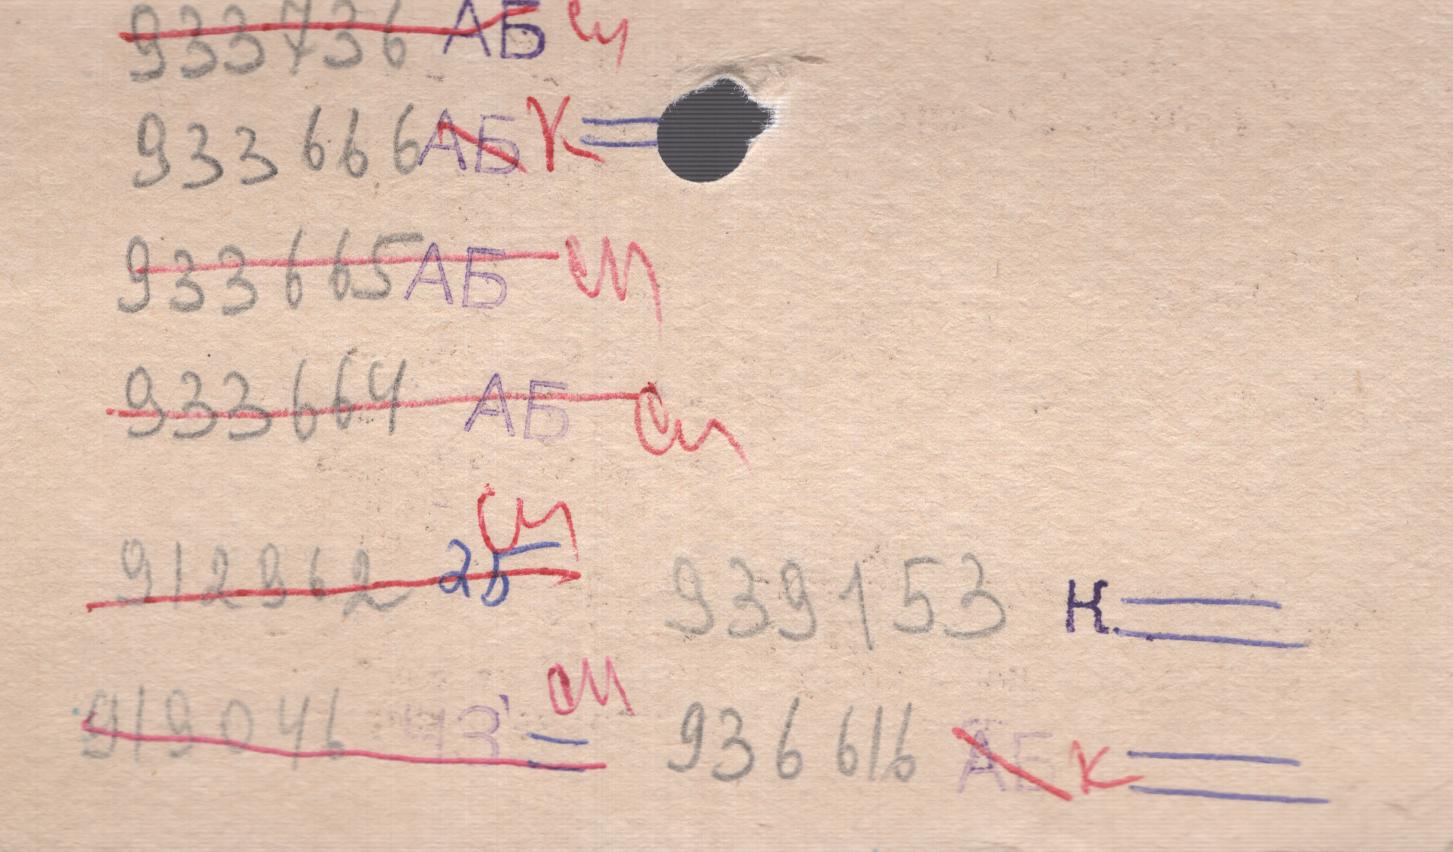 933736 АБ см
933666 АБ К
933665 АБ см
933664 АБ см
см
912962 2б
939153 К
см
919046 ЧЗ
936616 АБ К